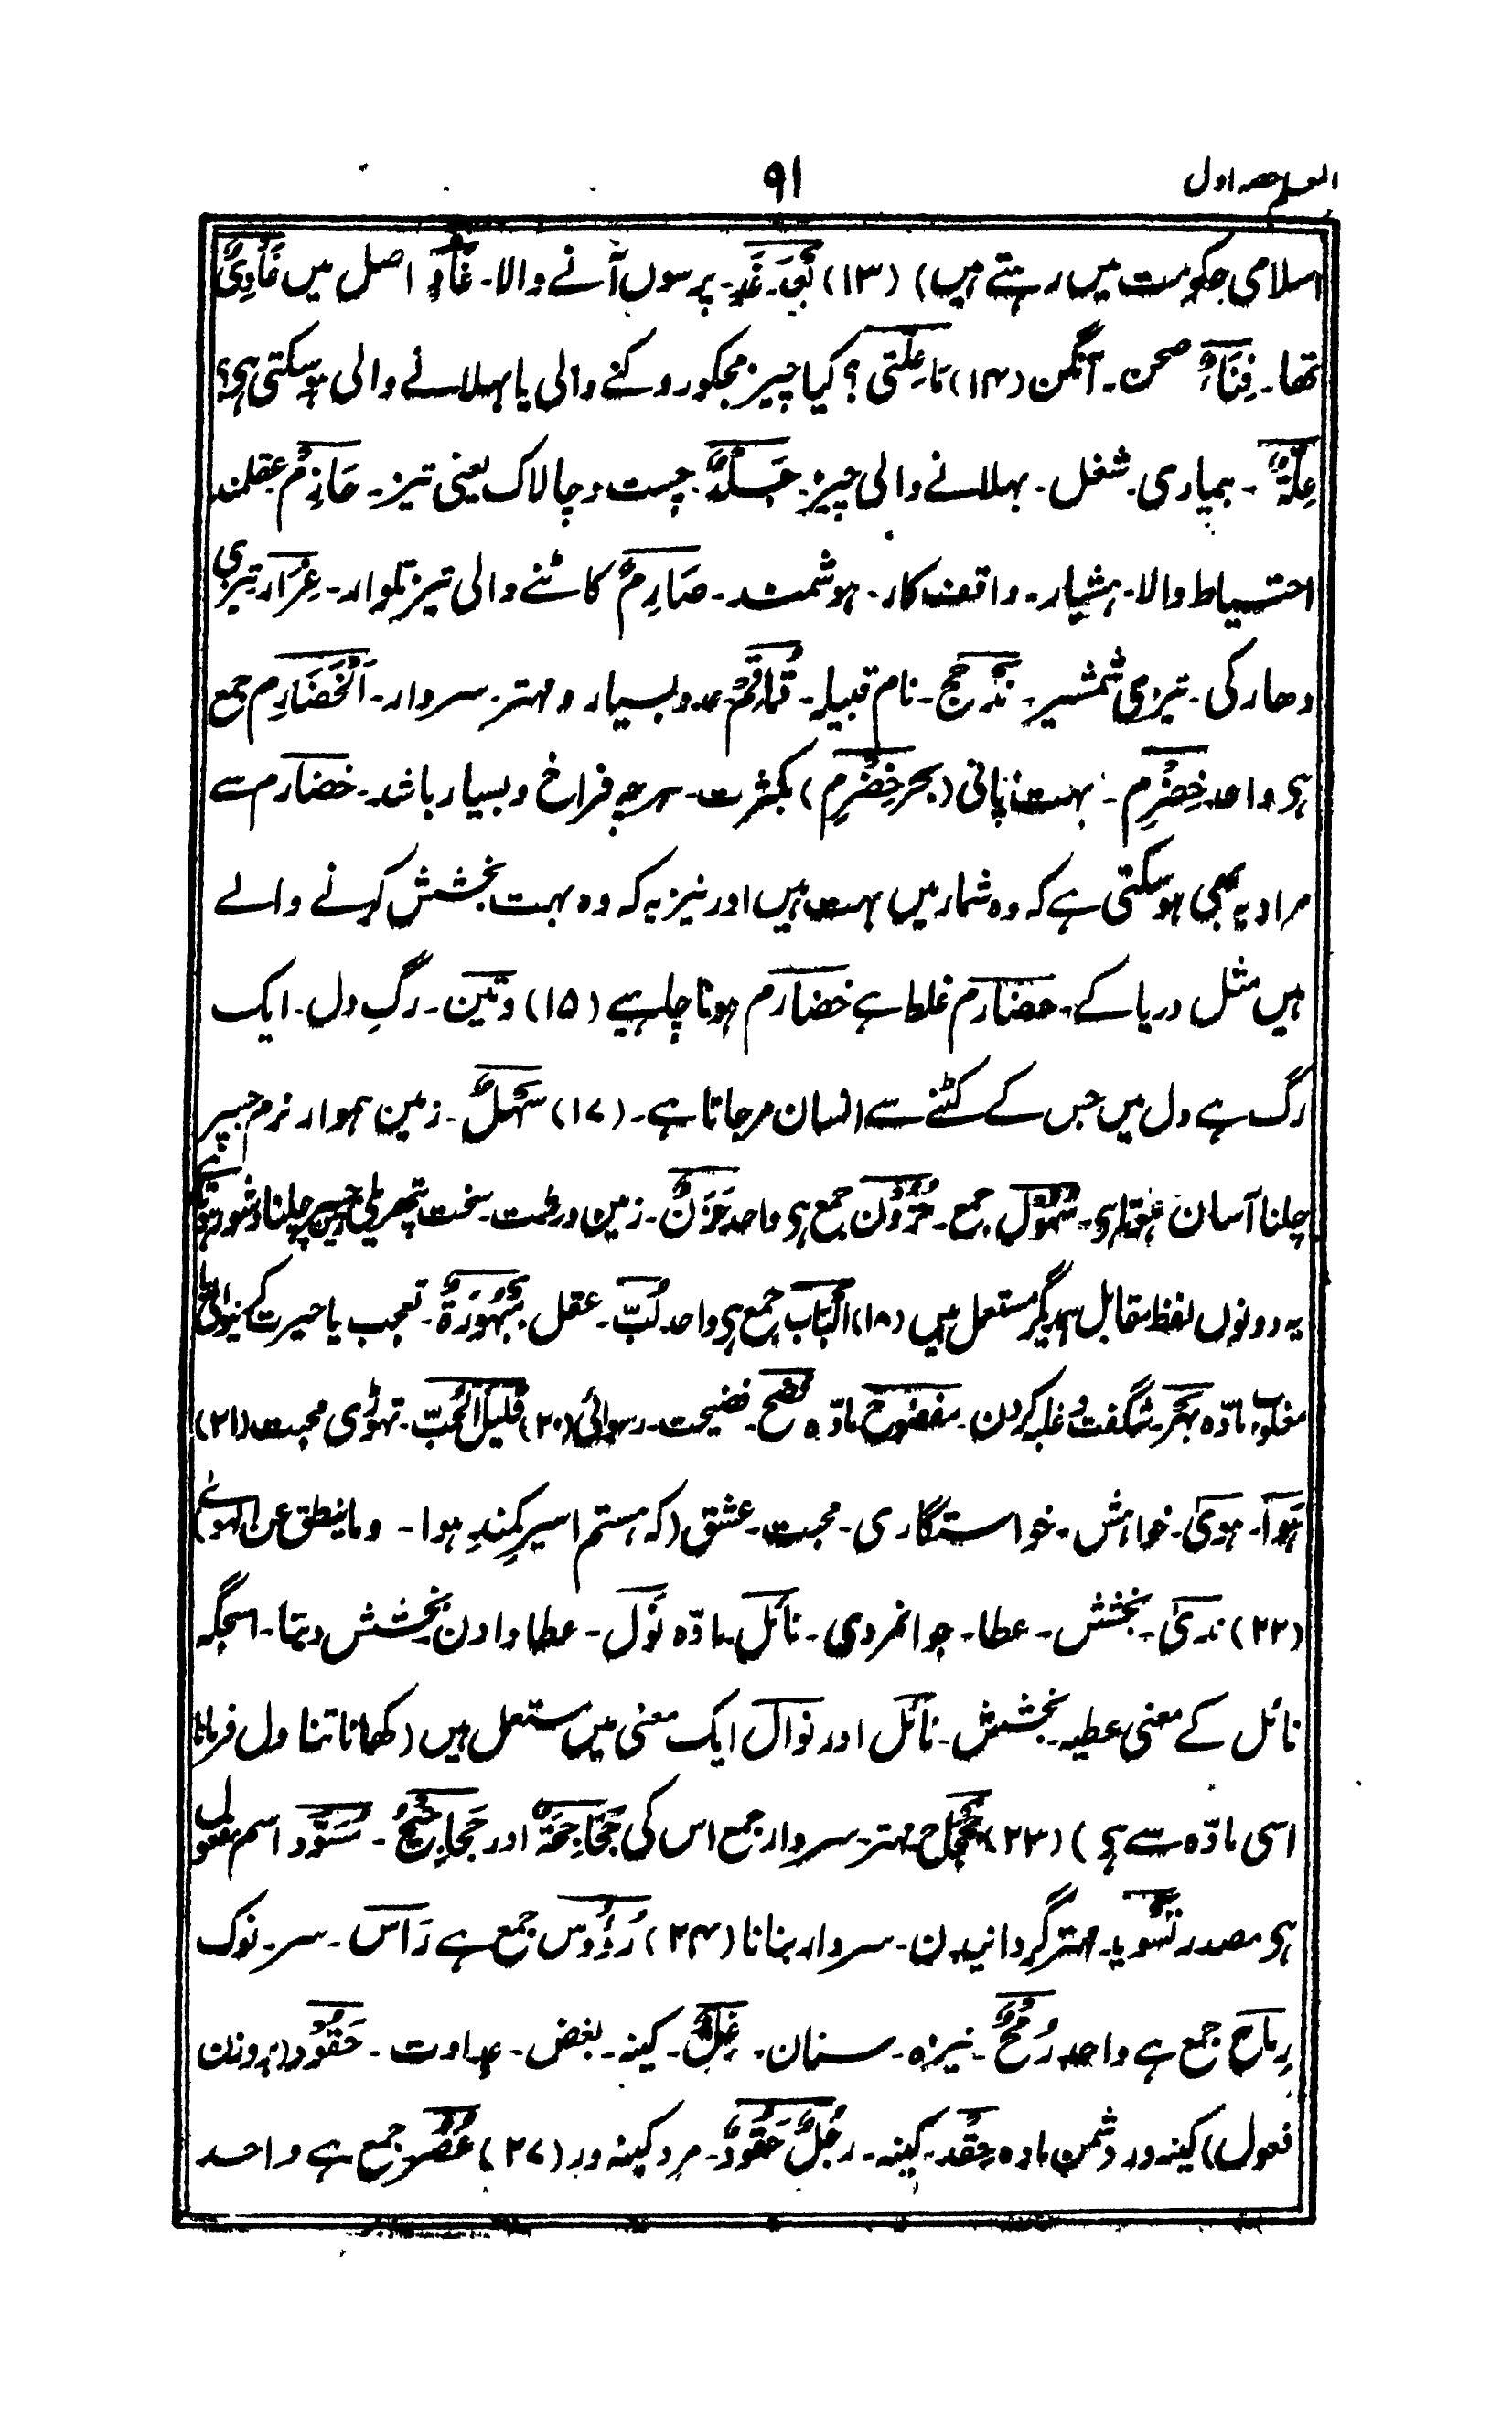 المعلم حصہ اول
۹۱
اسلامی حکومت میں رہتے ہیں) (۱۳) غَدٍ۔ پرسوں آنے والا۔ غَاوٍ اصل میں غَاوِیٌ
تھا۔ فِنَاءٌ صحن۔ آنگن (۱۴) مَاعِلَّتی؟ کیا چیز مجکو روکنے والی یا بہلانے والی ہوسکتی ہی؟
عِلَّۃٌ۔ بیماری۔ شغل۔ بہلانے والی چیز۔ جَلْدٌ۔ چست و چالاک یعنی تیز۔ حَازِمٌ عقلمند
احتیاط والا۔ ہشیار۔ واقف کار۔ ہوشمند۔ صَارِمٌ کاٹنے والی تیز تلوار۔ غِرَار تیزی
دھار کی۔ تیزی شمشیر۔ مَذْحِج۔ نام قبیلہ۔ قُمَاقِمْ عدد بسیار و مہتر۔ سردار۔ اَلْخَضَارِم جمع
ہی واحد خِضْرِم۔ بہت پانی (بحر خِضْرِم) بکثرت۔ ہرچہ فراخ و بسیار باشد۔ خضارم سے
مراد یہ بھی ہوسکتی ہے کہ وہ شمار میں بہت ہیں اور نیز یہ کہ وہ بہت بخشش کرنے والے
ہیں مثل دریا کے۔ حضارم غلط ہے خضارم ہونا چاہیے (۱۵) وتین۔ رگِ دل۔ ایک
رگ ہے دل میں جس کے کٹنے سے انسان مرجاتا ہے۔ (۱۷) سَہْلٌ۔ زمین ہموار نرم جسپر
چلنا آسان ہوتا ہی۔ سُہُوْل جمع۔ حُزُوْن جمع ہی واحد حَزَنٌ۔ زمین درشت۔ سخت پتھریلی جسپر چلنا دشوار ہوتا ہی
یہ دونوں لفظ مقابل ہمدیگر مستعمل ہیں (۱۸) اَلْبَاب جمع ہی واحد لُبّ۔ عقل۔ مَبْہُوْرَۃٌ۔ تعجب یا حیرت کرنیوالی
مغلوب مادّہ بَہْر۔ شگفت و غلبہ کردن۔ مفضوح مادّہ فضح۔ فضیحت۔ رسوائی (۲۰) قلیلُ الحُبّ۔ تھوڑی محبت (۲۱)
ہَوَا۔ ہویٰ۔ خواہش۔ خواستگاری۔ محبت۔ عشق (کہ ہستم اسیرِ کمندِ ہوا۔ وما ینطق عن الہویٰ)
(۲۲) ندیٰ۔ بخشش۔ عطا۔ جوانمردی۔ نائل مادّہ نَول۔ عطا دادن بخشش دینا۔ اسجگہ
نائل کے معنی عطیہ۔ بخشش۔ نائل اور نوال ایک معنی میں مستعمل ہیں (کھانا تناول فرمانا
اسی مادّہ سے ہی) (۲۳) جَحْجَاح۔ مہتر۔ سردار جمع اس کی جَحَاجِحَۃٌ اور جَحَاجِیْحٌ۔ مُسَوَّد اسم مفعول
ہی مصدر تَسْوید۔ مہتر گردانیدن۔ سردار بنانا (۲۴) رُؤُوس جمع ہے رَاس۔ سر۔ نوک
رِماح جمع ہے واحد رُمْحٌ۔ نیزہ۔ سنان۔ غِلٌّ۔ کینہ۔ بغض۔ عداوت۔ حَقُوْد (بروزن
فعول) کینہ ور دشمن مادہ حِقْد۔ کینہ۔ رَجُلٌ حَقُودٌ۔ مرد کینہ ور (۲۷) عُصُر جمع ہے واحد